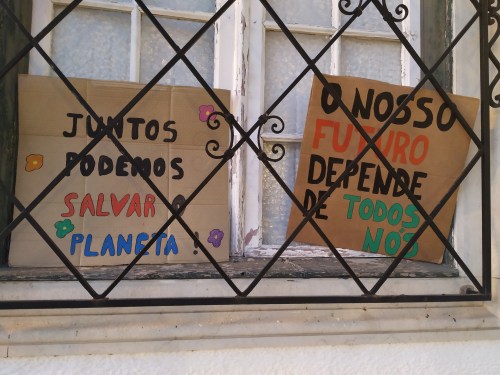 JUNTOS
PODEMOS
SALVAR O
PLANETA !
O NOSSO
FUTURO
DEPENDE
DE TODOS
NÓS